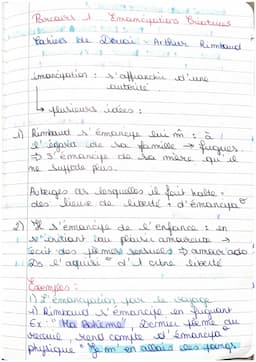 Parcours 1 Emancipations Créatrices
Cahiers de Douai - Arthur Rimbaud
émancipation : s'affranchir d'une
autorité
↳ plusieurs idées :
1) Rimbaud s'émancipe lui m̂ : à
l'égard de sa famille → fugues
⇒ s'émancipe de sa mère qu'il
ne supporte plus.
Auberges ds lesquelles il fait halte =
des lieux de liberté + d'émancipa°
2) Il s'émancipe de l'enfance : en
s'initiant au plaisir amoureux →
écrit des poèmes sensuels ⇒
de l'acquisi° d'1 liberté
Exemples :
1) L'émancipation par le voyage
→ Rimbaud s'émancipe en fuguant
Ex : "Ma Bohème", Dernier poème du
recueil rend compte d'émancipa°
physique "Je m'en allais, les poings